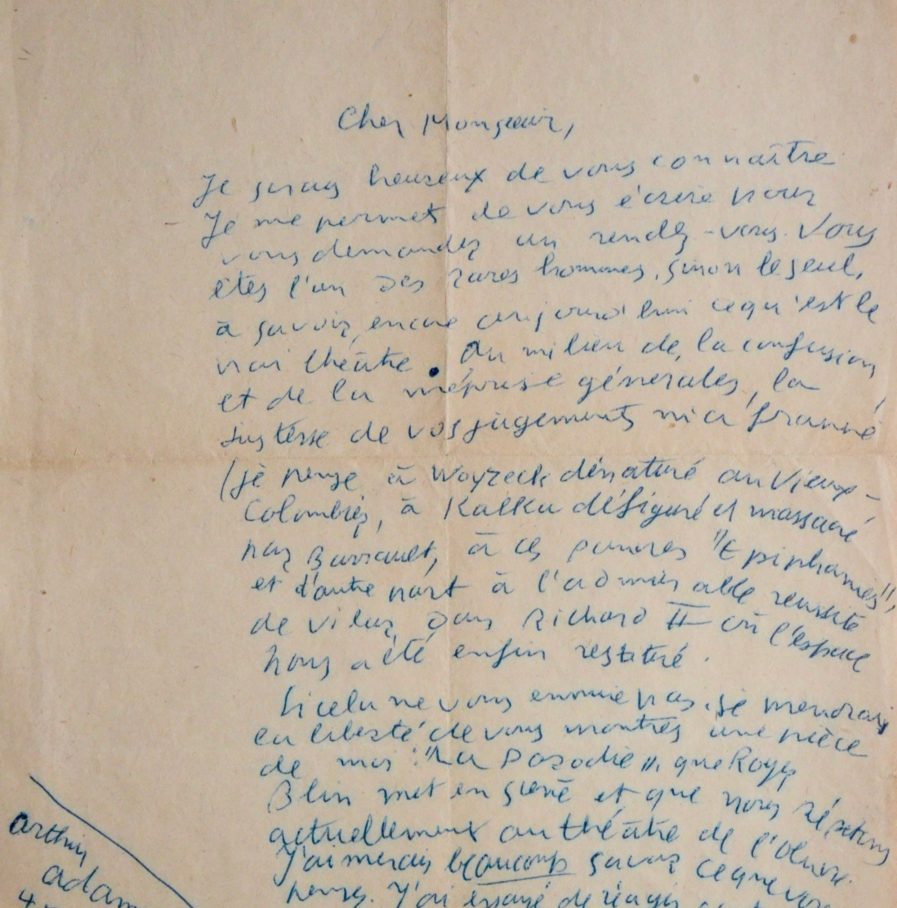 Cher Monsieur,
Je serais heureux de vous connaître
Je me permet de vous écrire pour
vous demander un rendez-vous. Vous
êtes l'un des rares hommes, sinon le seul,
à savoir encore aujourd'hui ce qu'est le
vrai théâtre. Au milieu de la confusion
et de la méprise générales, la
justesse de vos jugements m'a frappé
(je pense à Woyzeck dénaturé au Vieux-
Colombier, à Kafka défiguré et massacré
par Barrault, à ces pauvres "Epiphanies",
et d'autre part à l'admirable réussite
de Vilar dans Richard II où l'espace
nous a été enfin restitué.
Si cela ne vous ennuie pas, je prendrais
la liberté de vous montrer une pièce
de moi : "La Parodie", que Roger
Blin met en scène et que nous répétons
actuellement au théâtre de l'Oeuvre.
J'aimerais beaucoup savoir ce que vous
pensez. J'ai essayé de réagir
arthur
adam